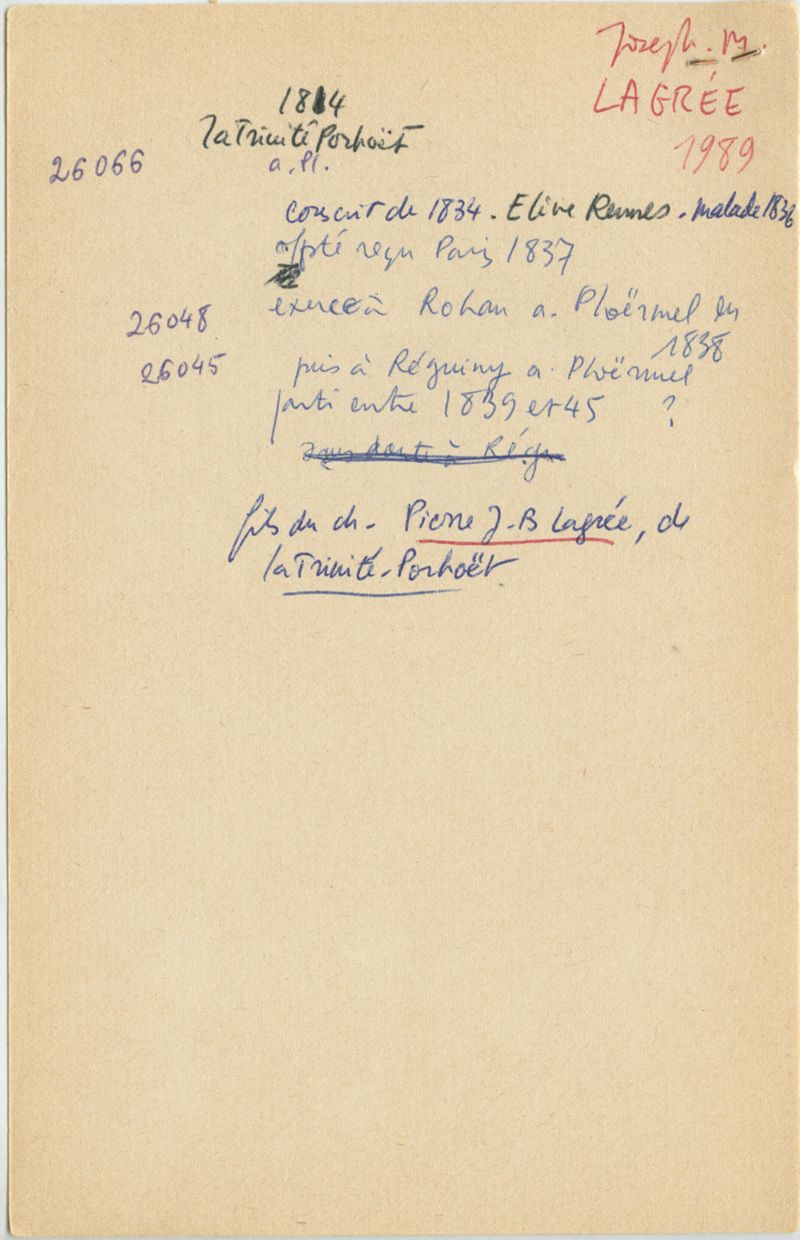 Joseph. M.
LAGRÉE
1989
1814
la Trinité Porhoët
26066 a. Pl.
conscrit de 1834. Elève Rennes. malade 1836
offsté reçu Paris 1837
26048 exerce à Rohan a. Ploërmel en
1838
26045 puis à Réguiny a. Ploërmel
parti entre 1839 et 45 ?
fils du ch. Pierre J-B Lagrée, de
la Trinité-Porhoët